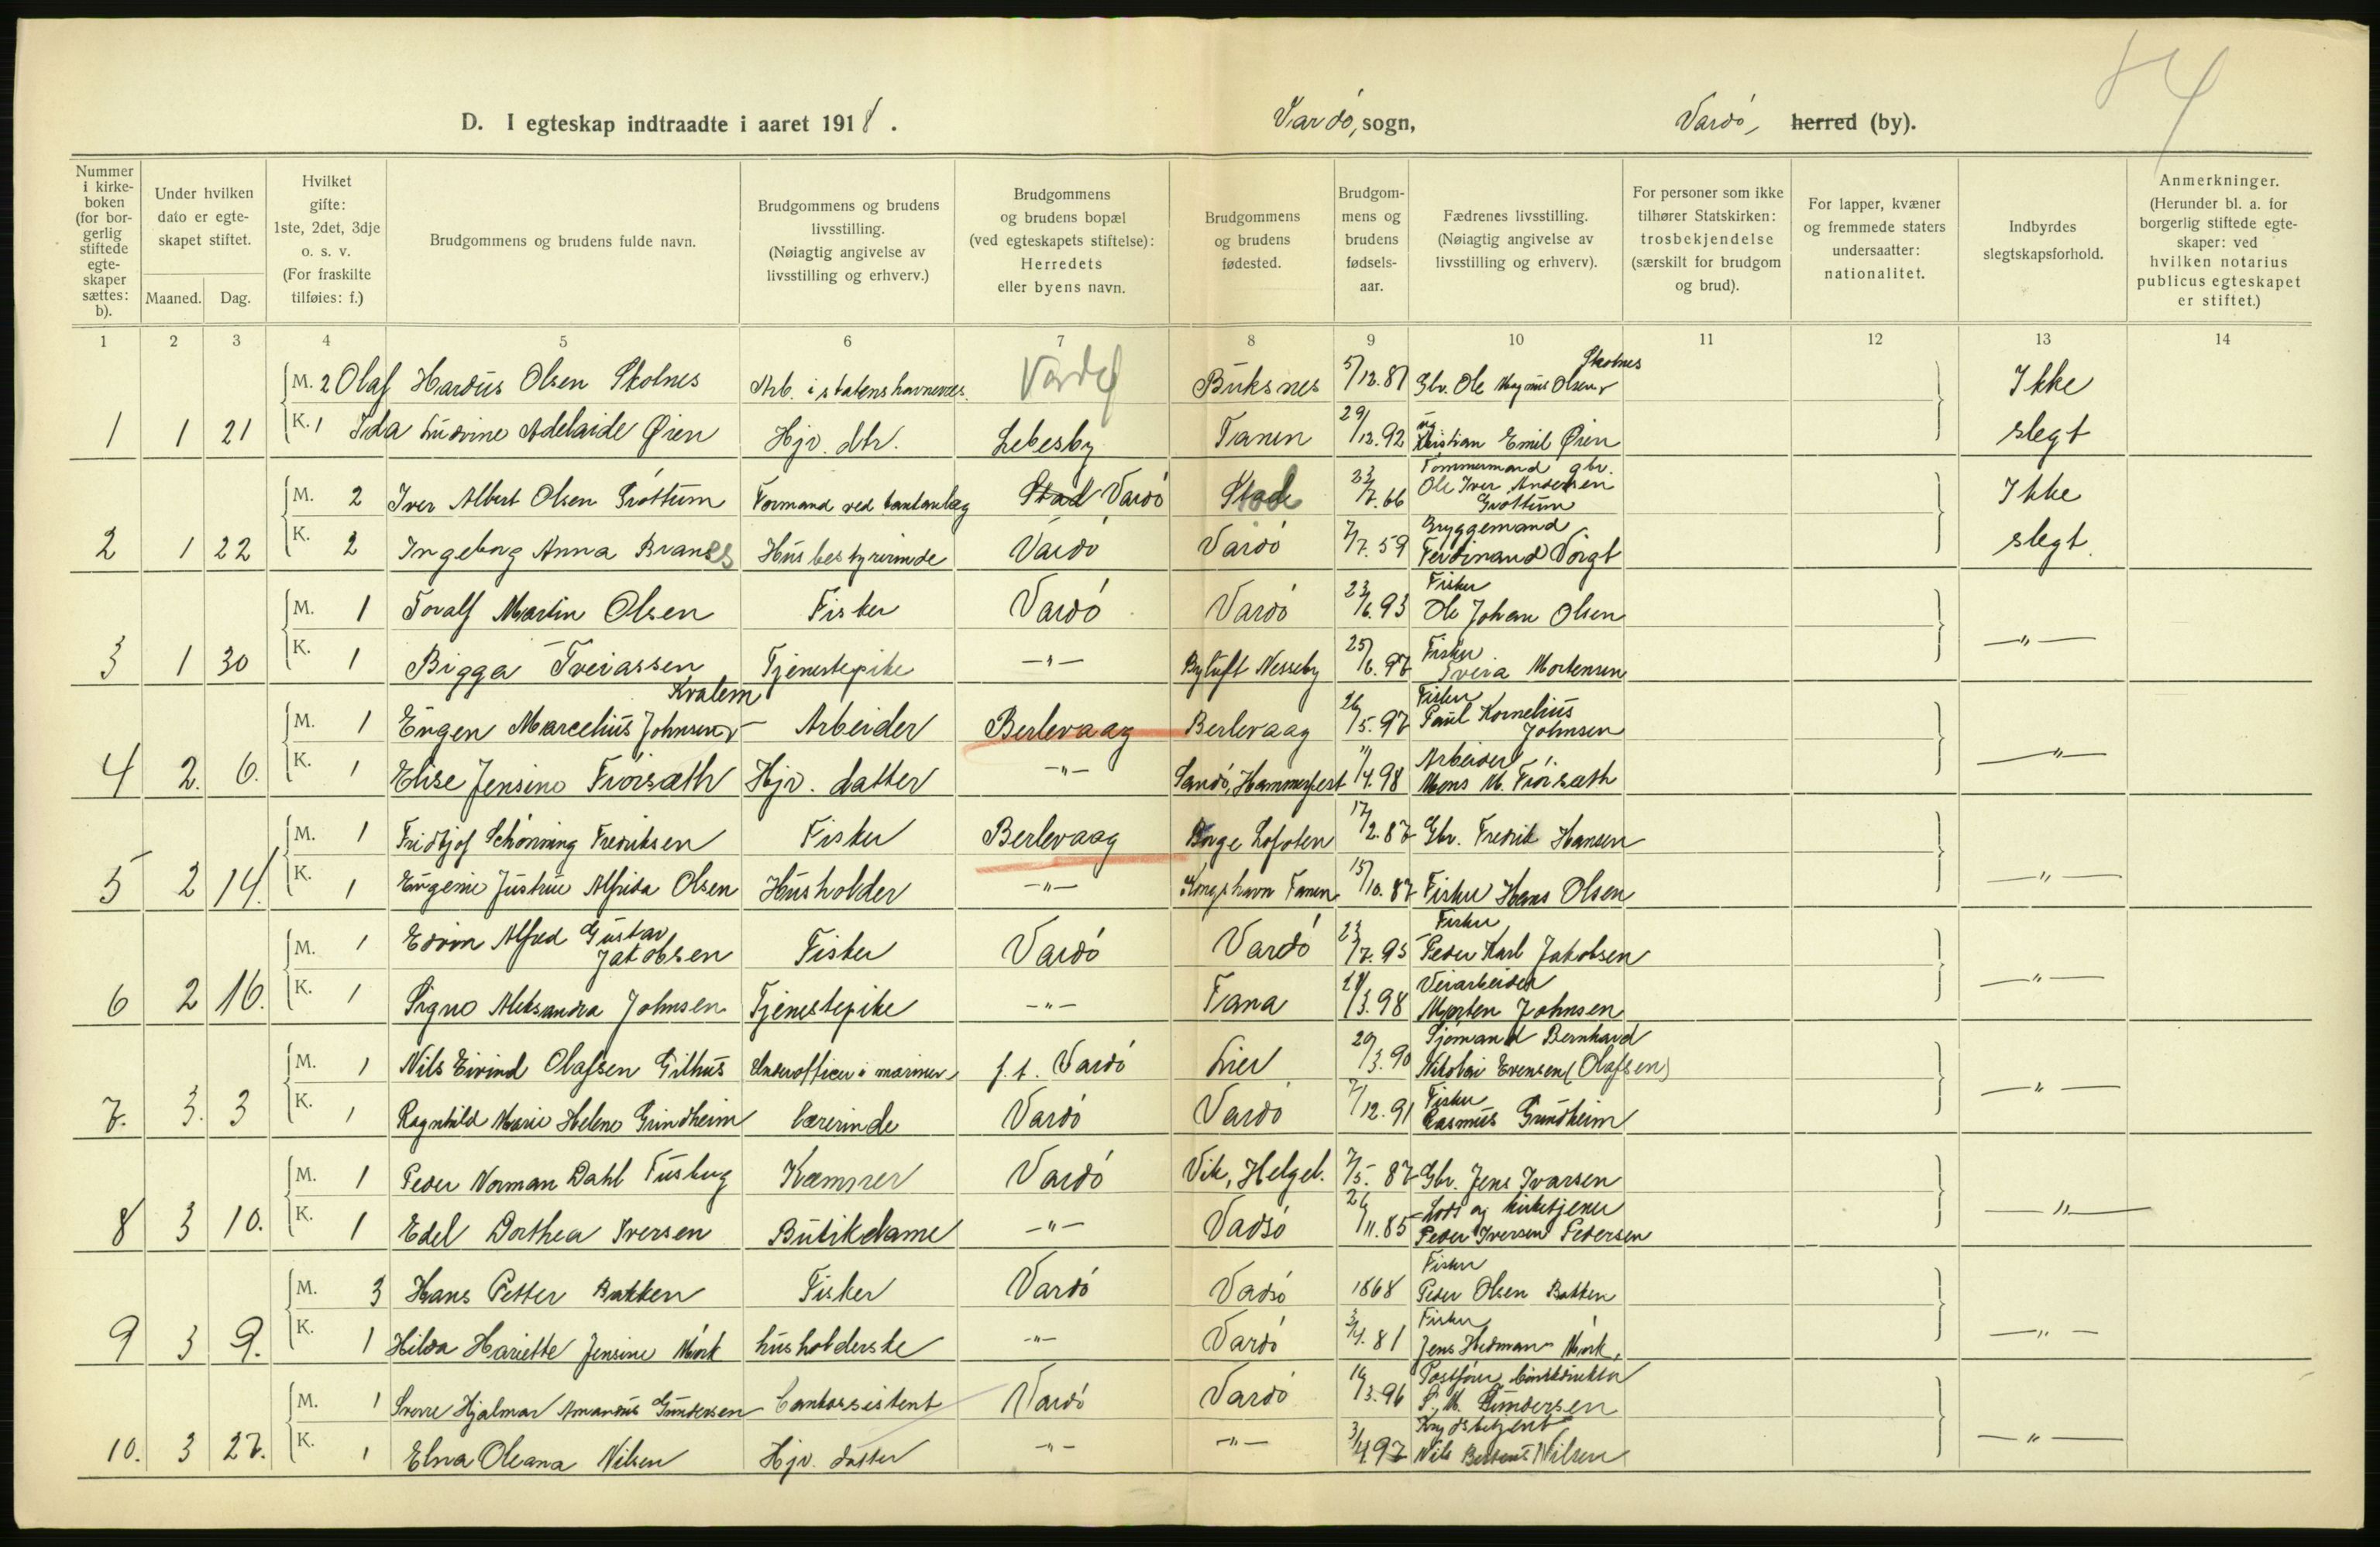 D. I egteskap indtraadte i aaret 1918. Vardö, sogn, Vardö, herred (by).
Nummer i kirkeboken (for borgerlig stiftede egteskaper sættes: b).
Under hvilken dato er egteskapet stiftet.
Maaned. Dag.
Hvilket gifte: 1ste, 2det, 3dje o. s. v. (For fraskilte tilføies: f.)
Brudgommens og brudens fulde navn.
Brudgommens og brudens livsstilling. (Nøiagtig angivelse av livsstilling og erhverv.)
Brudgommens og brudens bopæl (ved egteskapets stiftelse): Herredets eller byens navn.
Brudgommens og brudens fødested.
Brudgommens og brudens fødselsaar.
Fædrenes livsstilling. (Nøiagtig angivelse av livsstilling og erhverv).
For personer som ikke tilhører Statskirken: trosbekjendelse (særskilt for brudgom og brud).
For lapper, kvæner og fremmede staters undersaatter: nationalitet.
Indbyrdes slegtskapsforhold.
Anmerkninger. (Herunder bl. a. for borgerlig stiftede egteskaper: ved hvilken notarius publicus egteskapet er stiftet.)
1 2 3 4 5 6 7 8 9 10 11 12 13 14
M. 2 Olaf Hardüs Olsen Skolnes Arb. i statens havnevæs. Vardö Buksnes 5/12.87 Gbr. Ole Magnus Olsen Skolnes Ikke
1 1 21 K. 1 Ida Ludvine Adelaide Øien Hjv. dtr. Lebesby Tanen 29/12.92 Kristian Emil Øien slegt
M. 2 Iver Albert Olsen Gróttum Formand ved Stad Vardö Stod 23/7.66 Tömmermand gbr. Ole Iver Andersen Grottum Ikke
2 1 22 K. 2 Ingeborg Anna Branes Husbestyrerinde Vardö Vardö 7/7.59 Bryggemand Ferdinand Voigt slegt.
M. 1 Toralf Martin Olsen Fisker Vardö Vardö 23/6.93 Fisker Ole Johan Olsen
3 1 30 K. 1 Bigga Tveiassen Tjenestepike —"— Byluft Nesseby 25/6.97 Fisker Tveia Mortensen —"—
M. 1 Eugen Marcelius Johnsen Kvalem Arbeider Berlevaag Berlevaag 26/5.97 Fisker Paul Kornelius Johnsen
4 2. 6. K. 1 Elise Jensine Friorsæth Hjv. datter —"— Sandö, Hammerfest 11/4.98 Arbeider Mons M. Friorsæth —"—
M. 1 Fridtjof Schönning Fredriksen Fisker Berlevaag Borge Lofoten 17/2.87 Gbr. Fredrik Hansen
5 2 14. K. 1 Eugenie Justine Alfrida Olsen Husholder —"— Kongshavn Tanen 15/10.87 Fisker Hans Olsen —"—
M. 1 Edvin Alfred Gustav Jakobsen Fisker Vardö Vardö 23/7.95 Fisker Peder Karl Jakobsen
6 2 16. K. 1 Signe Aleksandra Johnsen Tjenestepike —"— Tana 21/3.98 Veiarbeider Morten Johnsen —"—
M. 1 Nils Eivind Olafsen Gilhus Underofficer i marinen f.t. Vardö Lier 20/3.90 Sjömand Bernhard Nikolai Evensen (Olafsen)
7. 3. 3 K. 1 Ragnhild Marie Helene Grindheim Lærerinde Vardö Vardö 7/12.91 Fisker Rasmus Grindheim —"—
M. 1 Peder Norman Dahl Kæmner Vardö Vik, Helgel. 7/5.87 Gbr. Jens Ivarsen
8 3 10. K. 1 Edel Dorthea Iversen Butikdame —"— Vadsö 26/11.85 Lods og kirketjener Peder Iversen Pedersen —"—
M. 3 Hans Petter Bakken Fisker Vardö Vadsö 1868 Fisker Peder Olsen Bakken
9 3 9. K. 1 Hilda Hariette Jensine Mörk husholderske —"— Vardö 3/4.81 Fisker Jens Hedman Mörk, —"—
M. 1 Sverre Hjalmar Amandus Gundersen Bankassistent Vardö Vardö 16/3.96 S. M. Gundersen
10. 3 27. K. 1 Elna Oleana Nilsen Hjv. datter —"— —"— 3/4.97 Nils Nilsen —"—